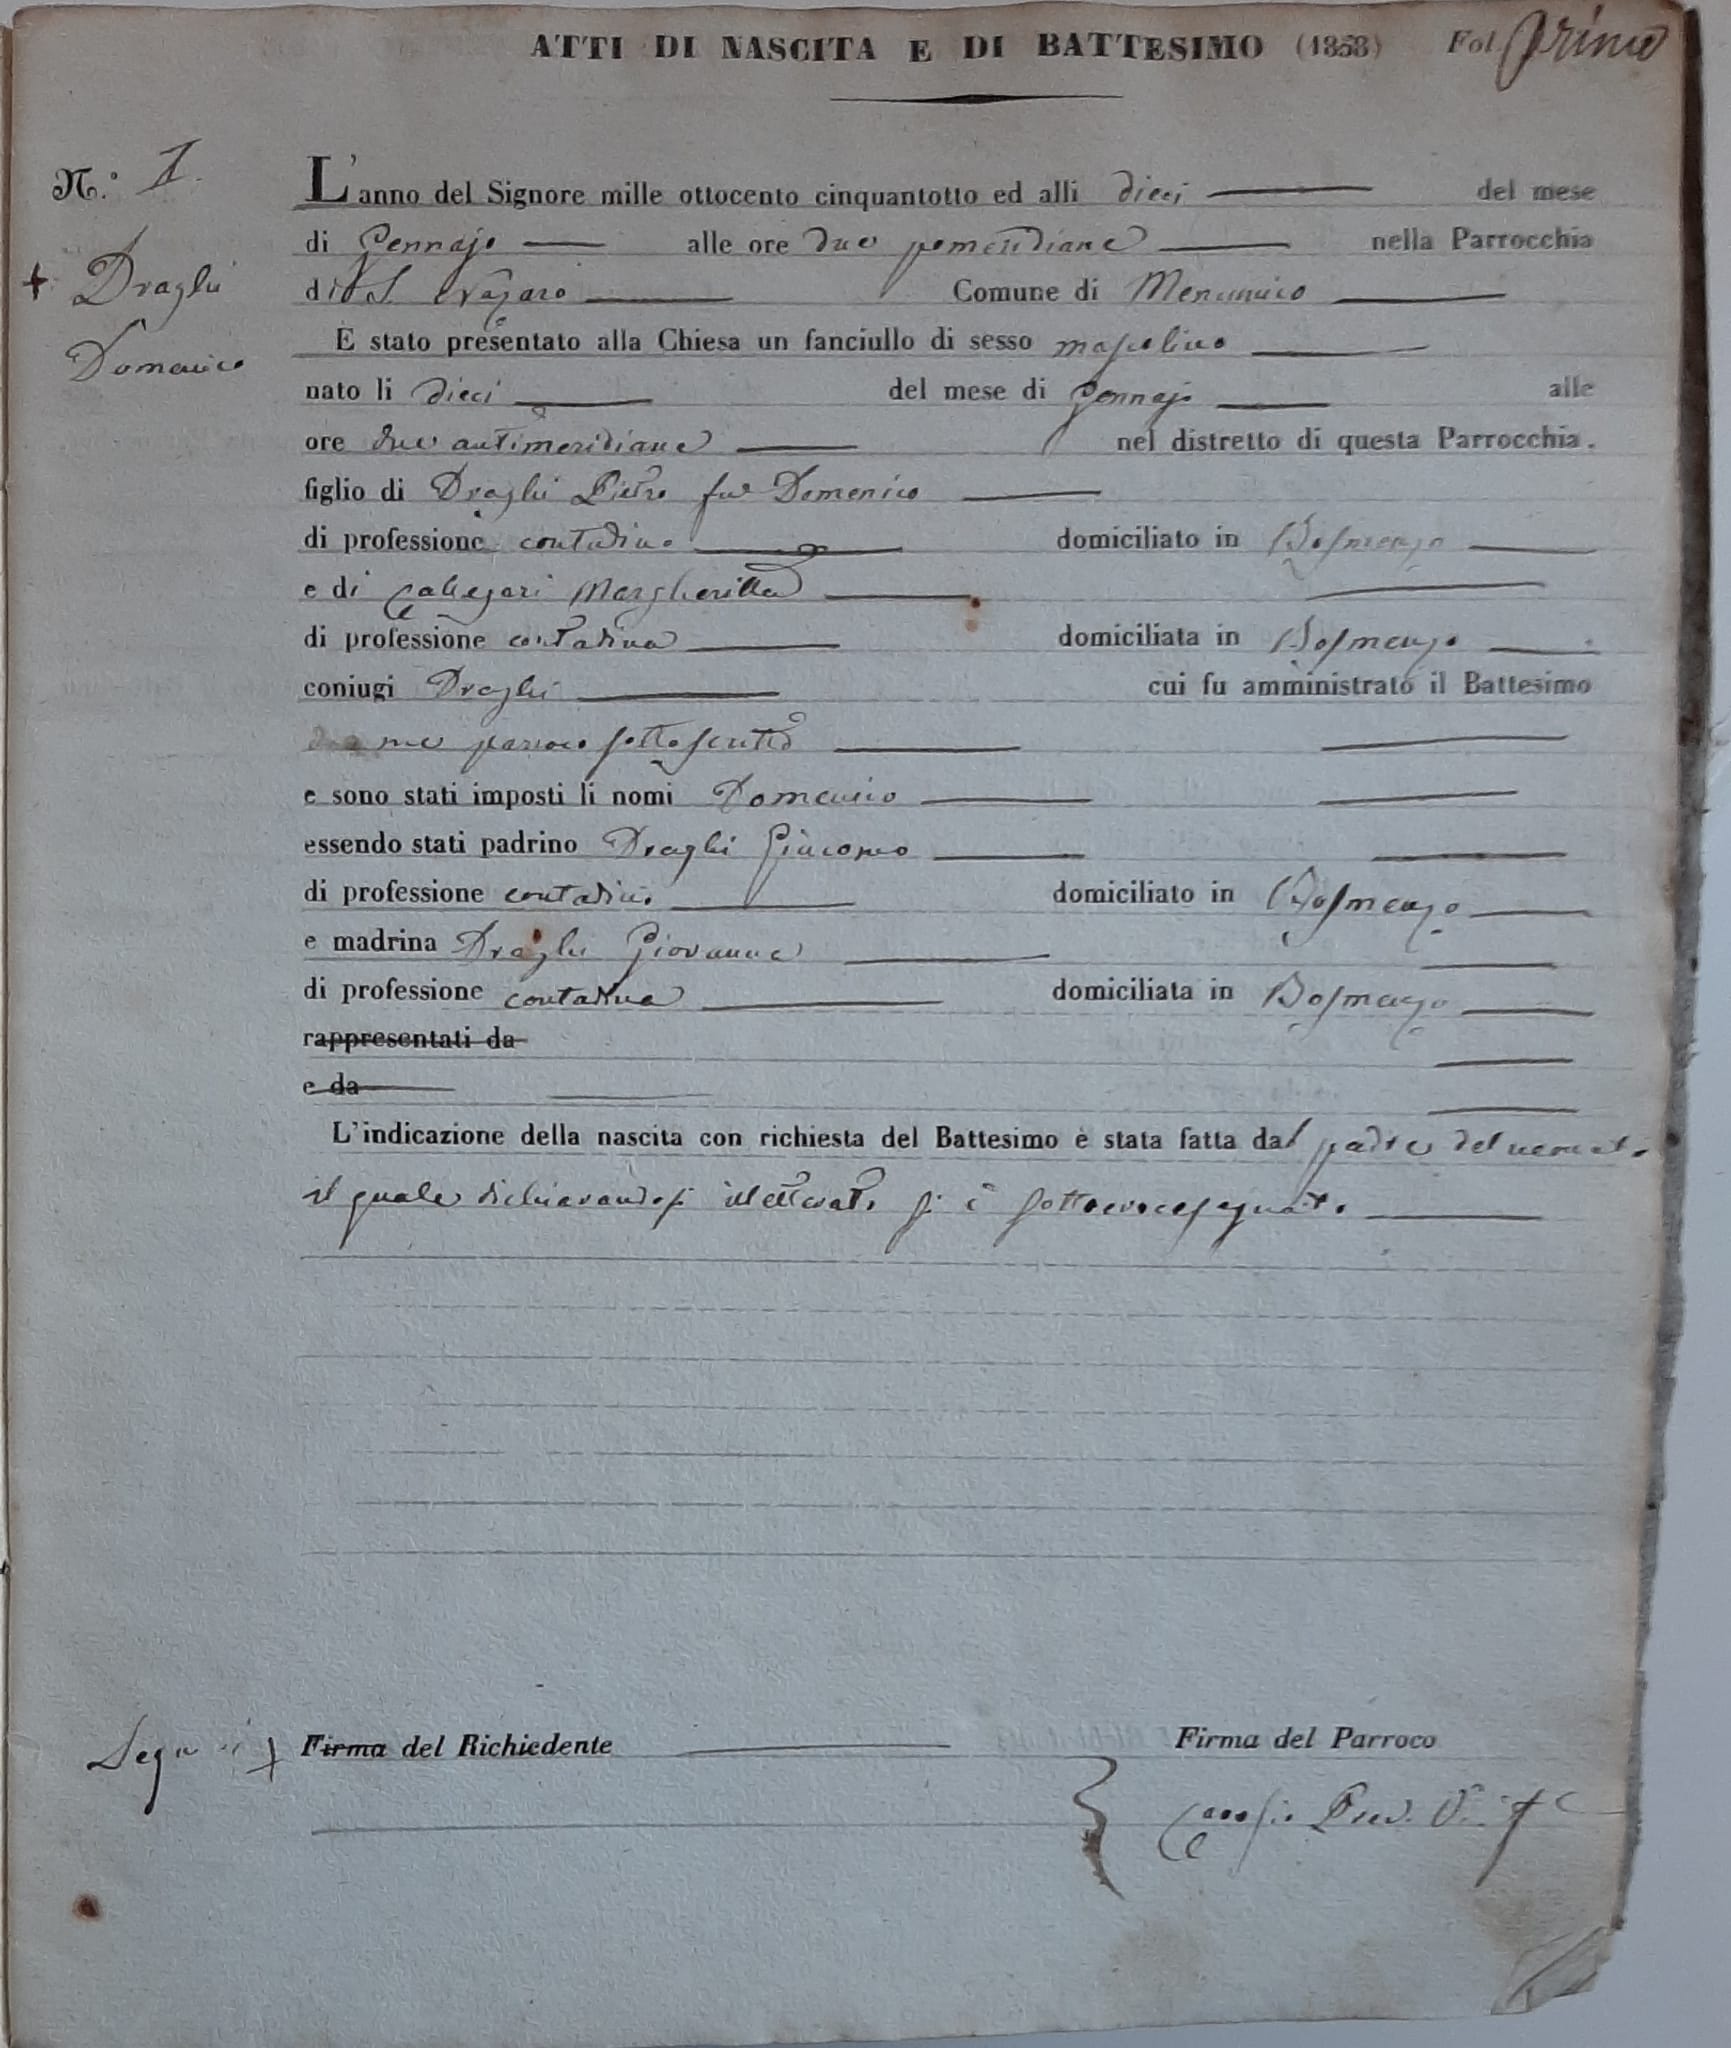 ATTI DI NASCITA E DI BATTESIMO (1858) Fol. primo
N.° 1.
L'anno del Signore mille ottocento cinquantotto ed alli dieci del mese
di Gennajo alle ore due pomeridiane nella Parrocchia
+ Draghi
di S. Nazaro Comune di Menconico
È stato presentato alla Chiesa un fanciullo di sesso mascolino
Domenico
nato li dieci del mese di Gennajo alle
ore due antimeridiane nel distretto di questa Parrocchia.
figlio di Draghi Pietro fu Domenico
di professione contadino domiciliato in Bosmenzo
e di Callegari Margheritta
di professione contadina domiciliata in Bosmenzo
coniugi Draghi cui fu amministrato il Battesimo
da me parroco sottoscritto
e sono stati imposti li nomi Domenico
essendo stati padrino Draghi Giacomo
di professione contadino domiciliato in Bosmenzo
e madrina Draghi Giovanna
di professione contadina domiciliata in Bosmenzo
rappresentati da
e da
L'indicazione della nascita con richiesta del Battesimo è stata fatta dal padre del neonato
il quale dichiarandosi illetterato si è sottocrocesegnato
Segno di + Firma del Richiedente Firma del Parroco